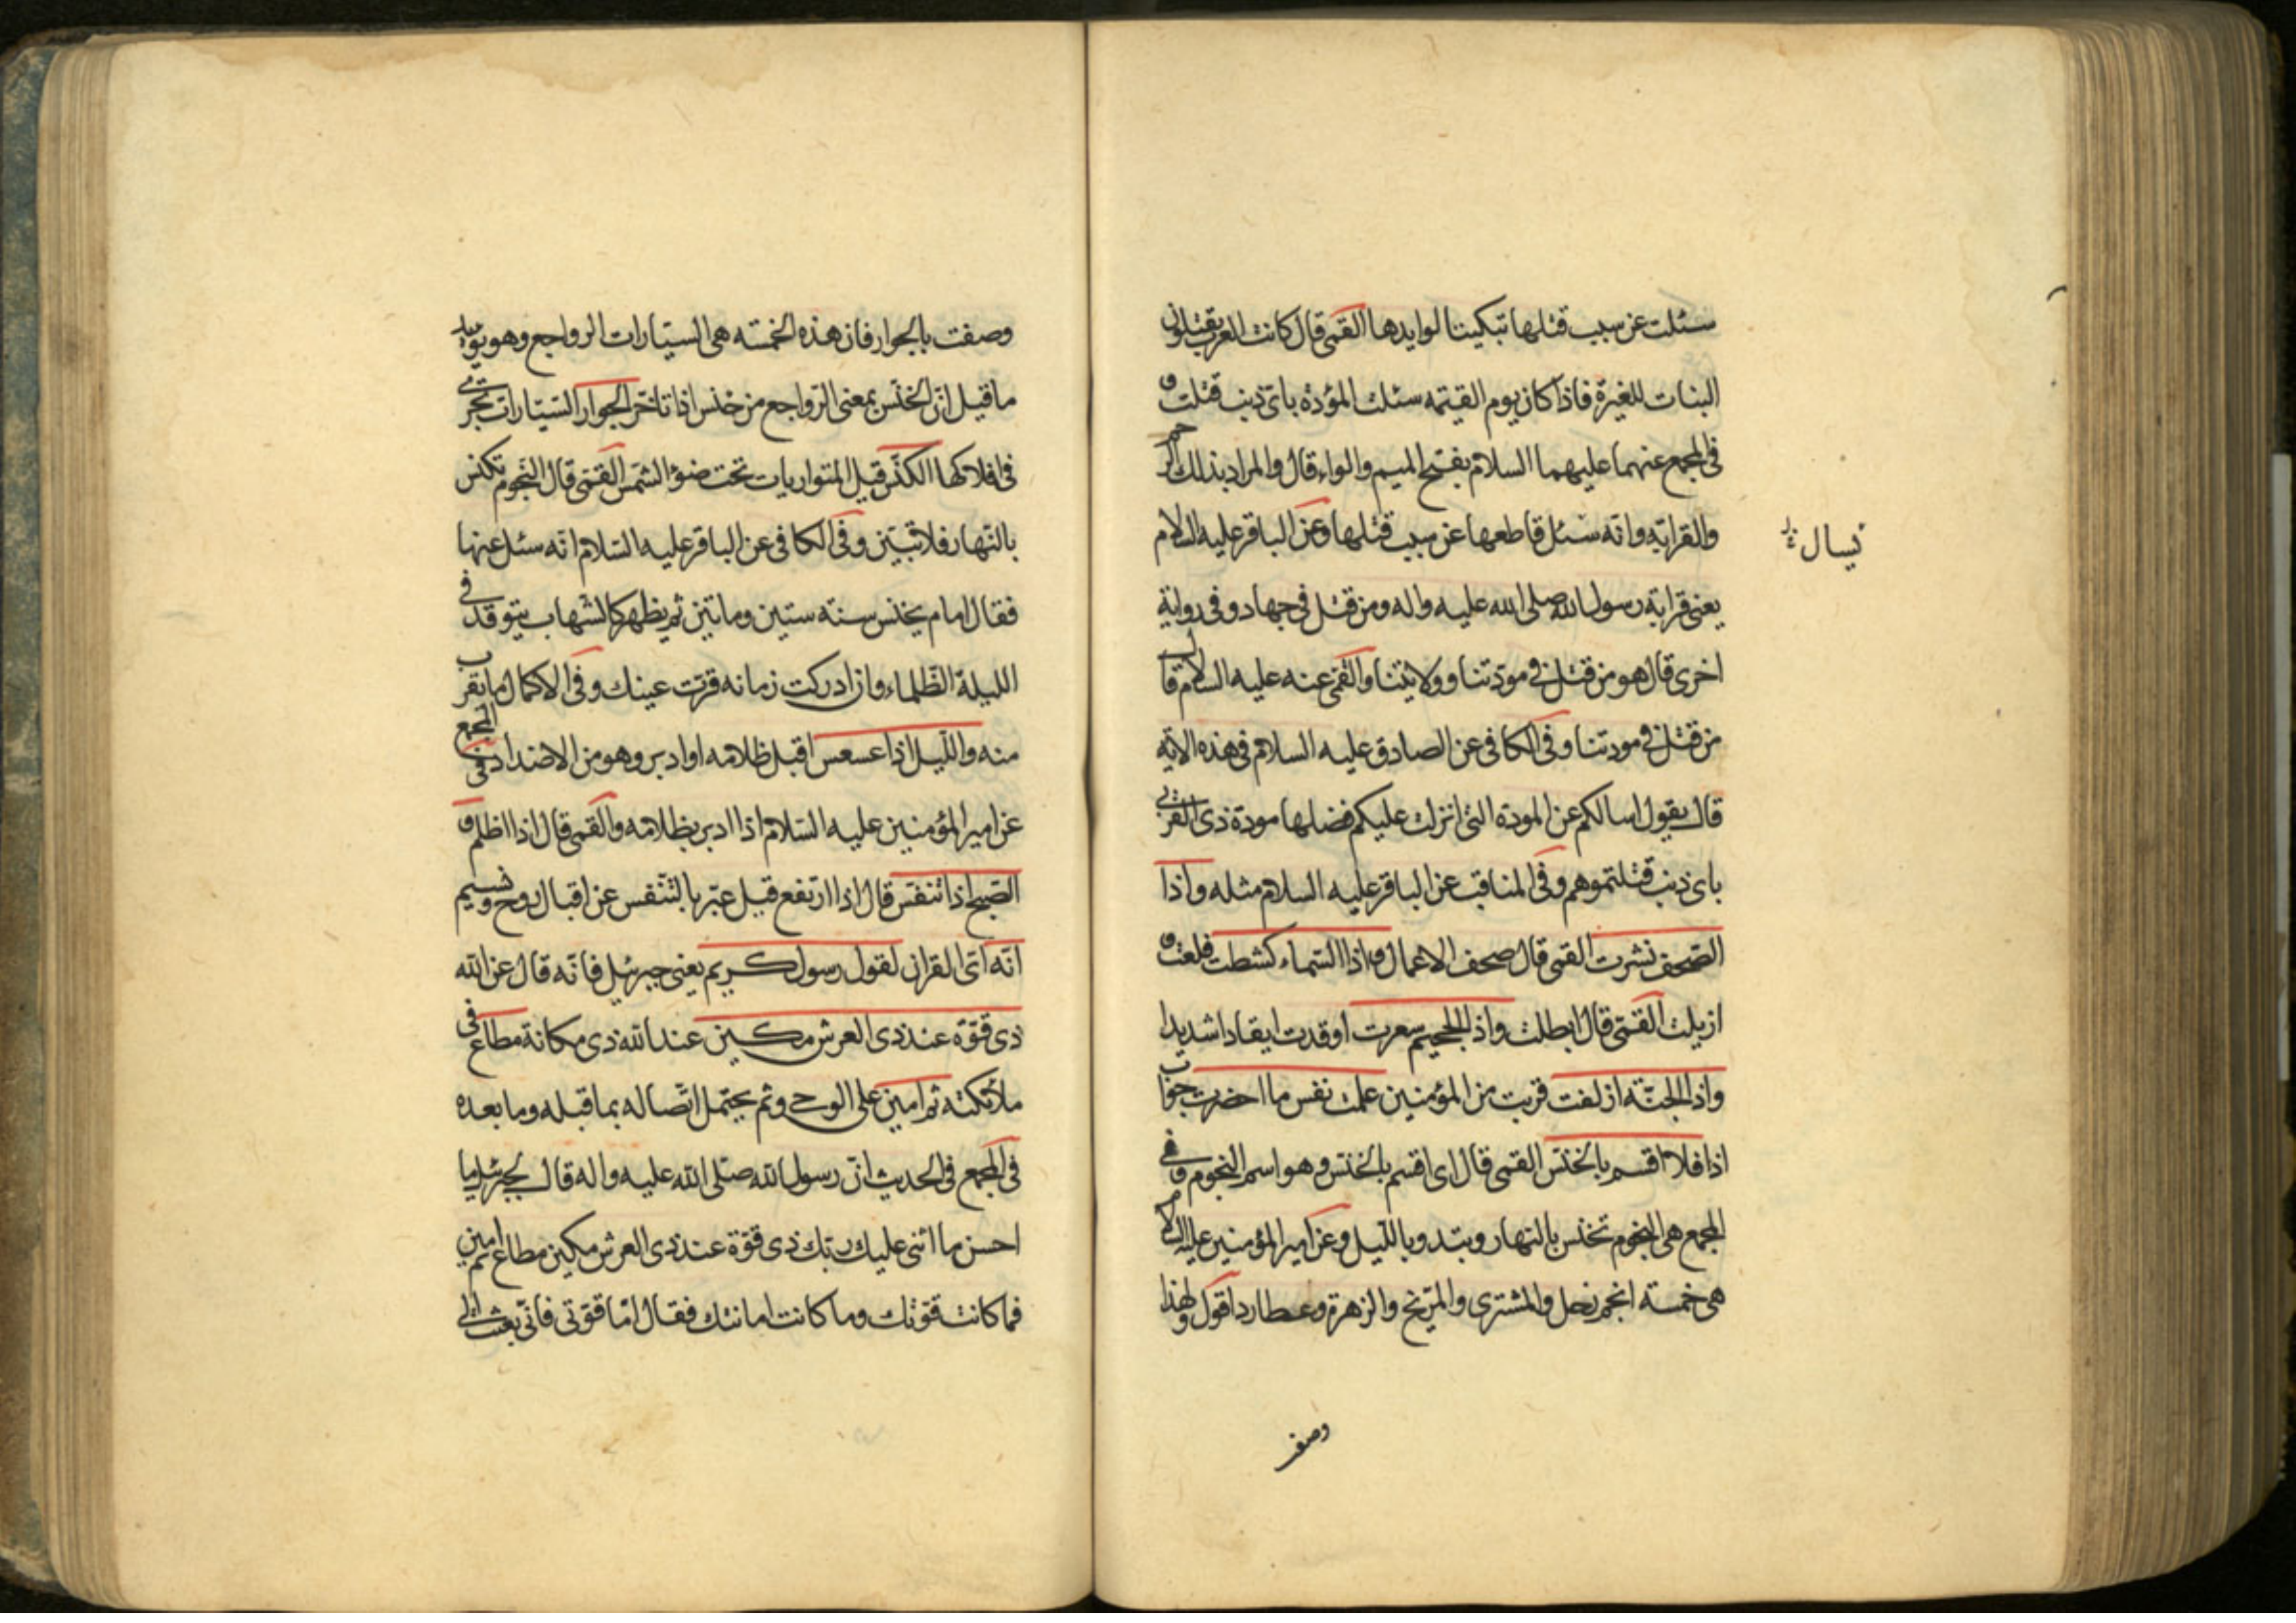 سئلت عن سبب قتلها تبكيتا لوايدها القمى قال كانت العرب يقتلون
البنات للغيرة فاذا كان يوم القيمه سئلت المؤدة باى ذنب قتلت و
فى المجمع عنهما عليهما السلام بفتح الميم والواو قال والمراد بذلك الرحم
والقرابة وانه سئل قاطعها عن سبب قتلها وعن الباقر عليه السلام
يسال
يعنى قرابة رسول الله صلى الله عليه واله ومن قتل فى جهاد وفى رواية
اخرى قال هو من قتل فى مودتنا وولايتنا والقمى عنه عليه السلام قال
من قتل فى مودتنا وفى الكافى عن الصادق عليه السلام فى هذه الاية
قال يقول اسالكم عن المودة التى انزلت عليكم فضلها مودة ذى القربى
باى ذنب قتلتموهم وفى المناقب عن الباقر عليه السلام مثله واذا
الصّحف نشرت القمى قال صحف الاعمال واذا السّماء كشطت قلعت و
ازيلت القمّى قال ابطلت واذا الجحيم سعرت اوقدت ايقادا شديدا
واذا الجنّة ازلفت قربت من المؤمنين علمت نفس ما احضرت جواب
اذا فلا اقسم بالخنّس القمى قال اى اقسم بالخنّس وهو اسم النجوم وفى
المجمع هى النجوم تخنس بالنهار وتبدو بالليل وعن امير المؤمنين عليه السلام
هى خمسة انجم زحل والمشترى والمرّيخ والزهرة وعطارد اقول ولهذا
وصفت
وصفت بالجوار فان هذه الخمسة هى السيّارات الرواجع وهو يؤيد
ما قيل انّ الخنّس بمعنى الرّواجع من خنس اذا تاخّر الجوار السّيّارات تجرى
فى افلاكها الكنّس قيل المتواريات تحت ضوء الشمس القمّى قال النّجوم تكنس
بالنّهار فلا تبيّن وفى الكافى عن الباقر عليه السّلام انّه سئل عنها
فقال امام يخنس سنة ستين وماتين ثم يظهر كالشهاب يتوقد فى
الليلة الظّلماء وان ادركت زمانه قرّت عينك وفى الاكمال ما يقرب
منه والّليل اذا عسعس اقبل ظلامه او ادبر وهو من الاضداد فى المجمع
عن امير المؤمنين عليه السّلام اذا ادبر بظلامه والقمى قال اذا اظلم و
الصّبح اذا تنفّس قال اذا ارتفع قيل عبّر بالتّنفّس عن اقبال روح ونسيم
انّه اتى القران لقول رسول كريم يعنى جبرئيل فانّه قال عن الله
ذى قوّة عند ذى العرش مكين عند الله ذى مكانة مطاع فى
ملائكته ثم امين على الوحى وثم يحتمل اتّصاله بما قبله وما بعده
فى المجمع فى الحديث انّ رسول الله صلّى الله عليه واله قال لجبرئيل ما
احسن ما اثنى عليك ربّك ذى قوّة عند ذى العرش مكين مطاع ثم امين
فما كانت قوّتك وما كانت امانتك فقال امّا قوّتى فانّى بعثت الى